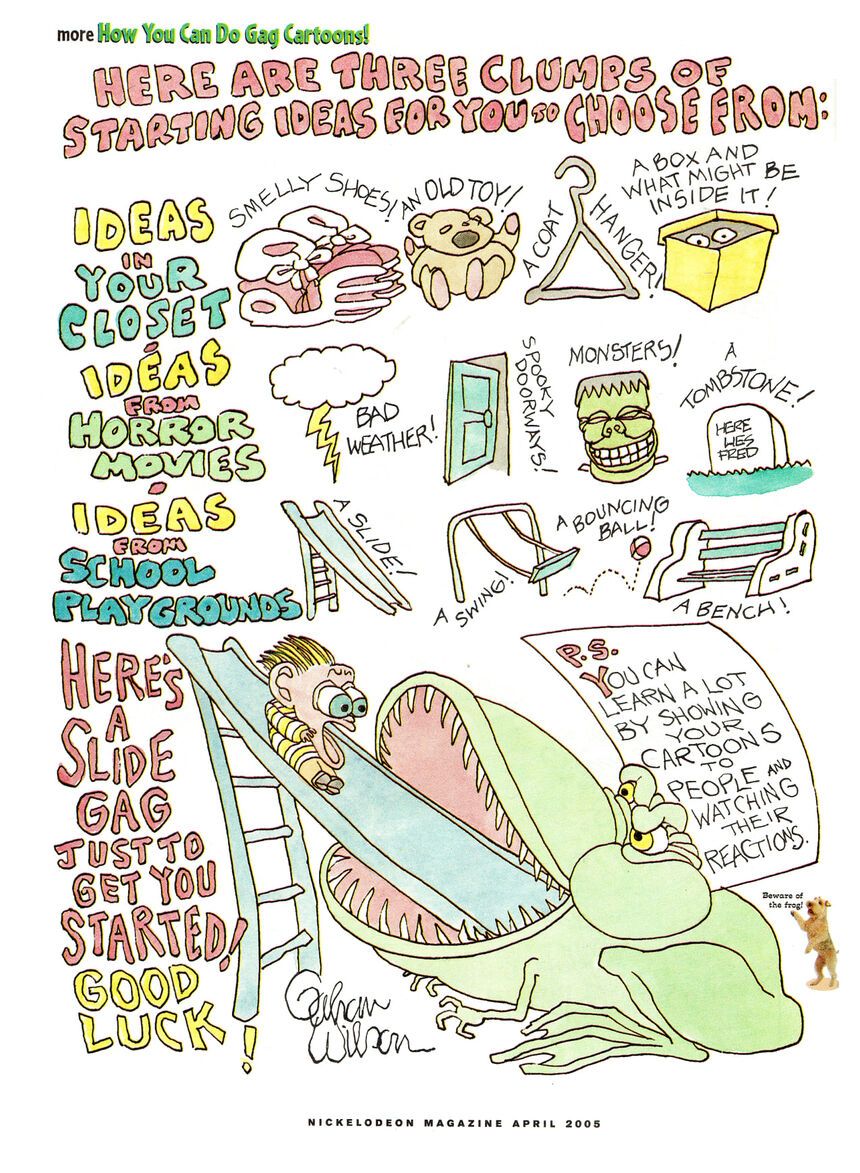 more How You Can Do Gag Cartoons!
HERE ARE THREE CLUMPS OF
STARTING IDEAS FOR YOU TO CHOOSE FROM:
IDEAS
IN
YOUR
CLOSET
SMELLY SHOES!
AN OLD TOY!
A COAT
HANGER!
A BOX AND
WHAT MIGHT BE
INSIDE IT!
IDEAS
FROM
HORROR
MOVIES
BAD
WEATHER!
SPOOKY
DOORWAYS!
MONSTERS!
A
TOMBSTONE!
HERE
LIES
FRED
IDEAS
FROM
SCHOOL
PLAYGROUNDS
A SLIDE!
A SWING!
A BOUNCING
BALL!
A BENCH!
HERE'S
A
SLIDE
GAG
JUST TO
GET YOU
STARTED!
GOOD
LUCK!
P.S.
YOU CAN
LEARN A LOT
BY SHOWING
YOUR
CARTOONS
TO
PEOPLE AND
WATCHING
THEIR
REACTIONS.
Beware of
the frog!
Gahan
Wilson
NICKELODEON MAGAZINE APRIL 2005